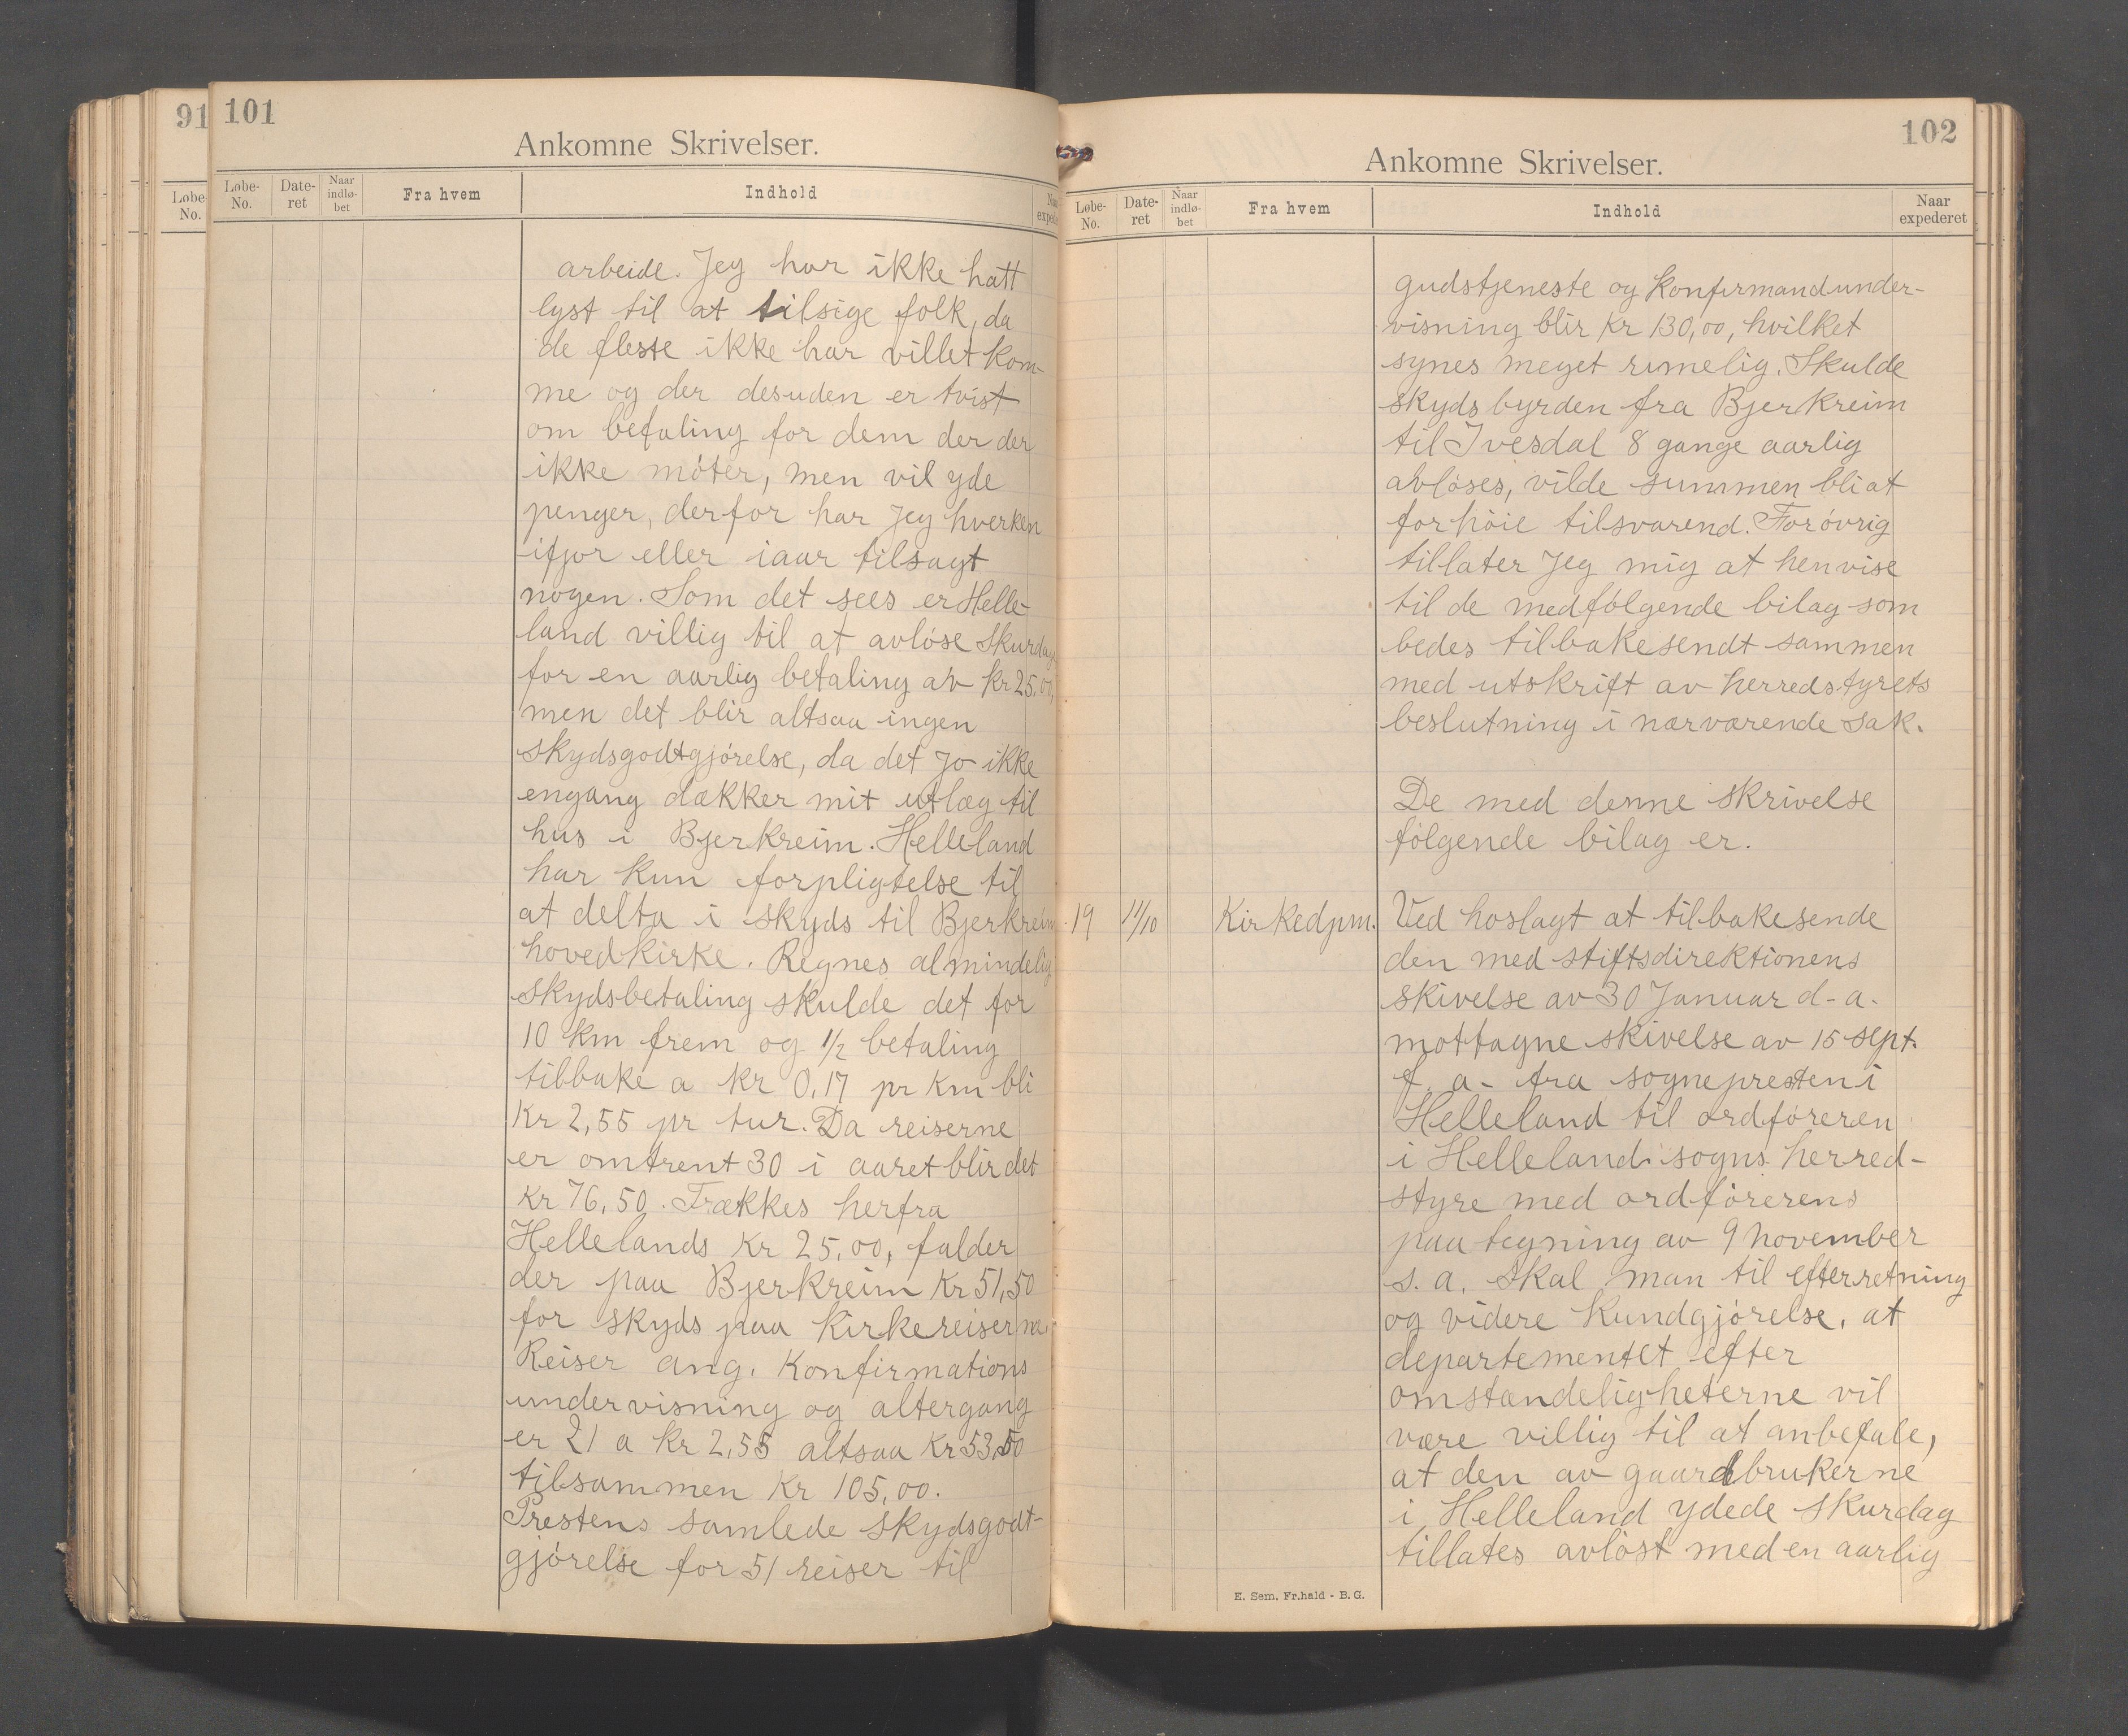 91
Løbe-
No.
101
Ankomne Skrivelser.
Løbe-
No.
Date-
ret
Naar
indlø-
bet
Fra hvem
Indhold
arbeide. Jeg har ikke hatt
lyst til at tilsige folk, da
de fleste ikke har villet kom-
me og der desuden er tvist
om befaling for dem der der
ikke møter, men vil yde
penger, derfor har Jeg hverken
ifjor eller iaar tilsagt
nogen. Som det sees er Helle-
land villig til at avløse Skurdag
for en aarlig betaling av Kr 25,00,
men det blir altsaa ingen
skydsgodtgjørelse, da det jo ikke
engang dækker mit utlæg til
hus i Bjerkreim. Helleland
har kun forpligtelse til
at delta i skyds til Bjerkreim
hovedkirke. Regnes almindelig
skydsbetaling skulde det for
10 km frem og 1/2 betaling
tilbake a kr 0,17 pr Km bli
Kr 2,55 pr tur. Da reiserne
er omtrent 30 i aaret blir det
Kr 76,50. Trækkes herfra
Hellelands Kr 25,00, falder
der paa Bjerkreim Kr 51,50
for skyds paa Kirkereiserne.
Reiser ang. Konfirmations
undervisning og altergang
er 21 a Kr 2,55 altsaa Kr 53,50
tilsammen Kr 105,00.
Prestens samlede skydsgodt-
gjørelse for 51 reiser til
102
Ankomne Skrivelser.
Løbe-
No.
Date-
ret
Naar
indlø-
bet
Fra hvem
Indhold
Naar
expederet
gudstjeneste og Konfirmandunder-
visning blir Kr 130,00, hvilket
synes meget rimelig. Skulde
skydsbyrden fra Bjerkreim
til Ivesdal 8 gange aarlig
avløses, vilde summen bli at
forhøie tilsvarend. Forøvrig
tillater Jeg mig at henvise
til de medfølgende bilag som
bedes tilbakesendt sammen
med utskrift av herredstyrets
beslutning i nærværende sak.
De med denne skrivelse
følgende bilag er.
19 11/10 Kirkedpm. Ved hoslagt at tilbakesende
den med stiftsdirektionens
skivelse av 30 Januar d-a-
mottagne skivelse av 15 sept.
f. a- fra sognepresten i
Helleland til ordføreren
i Helleland sogns herred-
styre med ordførerens
paategning av 9 november
s. a. skal man til efterretning
og videre kundgjørelse, at
departementet efter
omstændeligheterne vil
være villig til at anbefale,
at den av gaardbrukerne
i Helleland ydede skurdag
tillates avløst med en aarlig
E. Sem, Fr.hald - B. G.